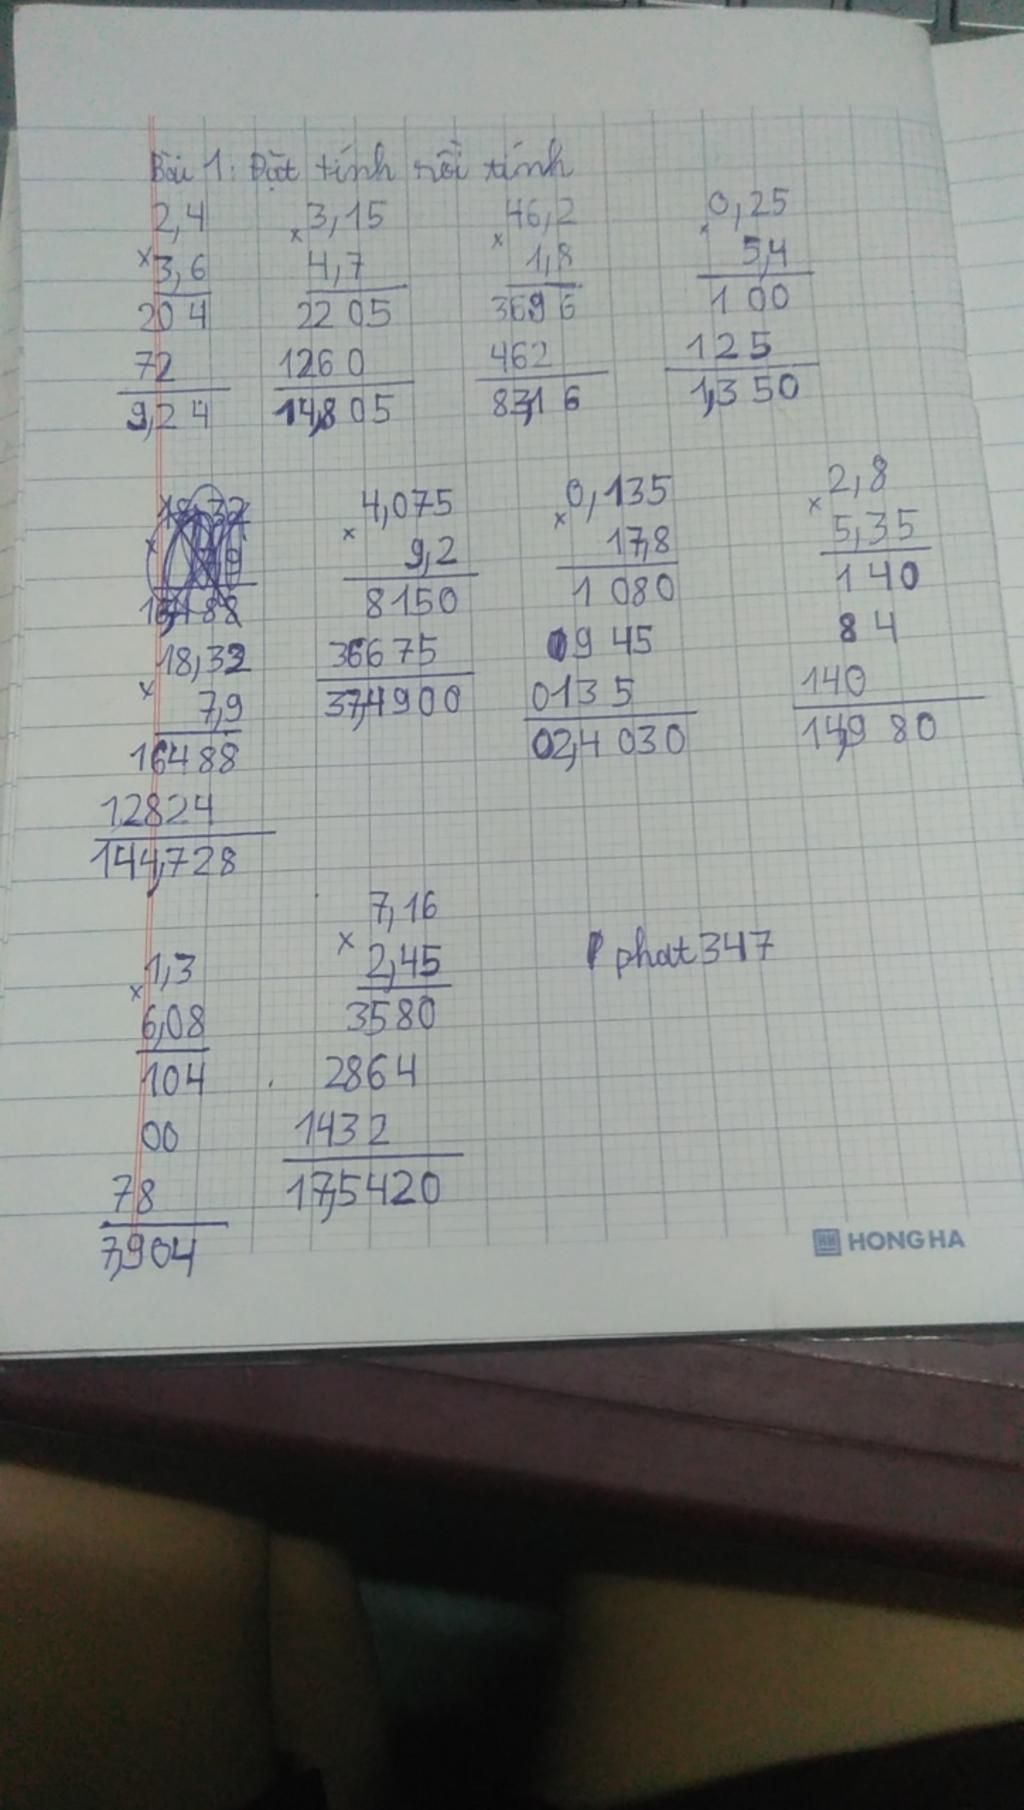 Bài 1: Đặt tính rồi tính
2,4 3,15 46,2 0,25
x x x x
3,6 4,7 1,8 5,4
204 2205 3696 100
72 1260 462 125
9,24 14,805 83,16 1,350
4,075 0,135 2,8
x x x
9,2 17,8 5,35
8150 1080 140
36675 0945 84
37,4900 0135 140
02,4030 14,980
18,32
x
7,9
16488
12824
144,728
1,3
x
6,08
104
00
78
7,904
7,16
x
2,45
3580
2864
1432
17,5420
phat347
HONG HA